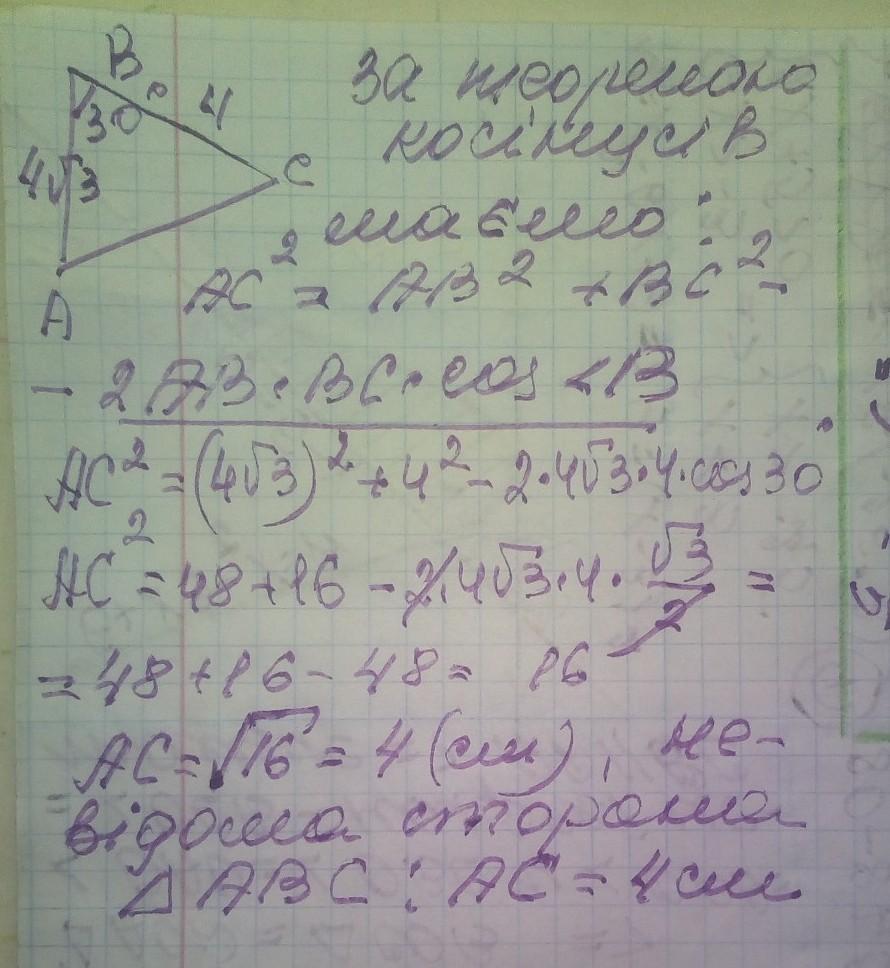 B
30°
4
4√3
C
A
За теоремою
косінусів
маємо:
AC² = AB² + BC² -
- 2AB·BC·cos <B
AC² = (4√3)² + 4² - 2·4√3·4·cos30°
AC² = 48 + 16 - 2·4√3·4·√3/2 =
= 48 + 16 - 48 = 16
AC = √16 = 4 (см), не-
відома сторона
△ABC : AC = 4 см